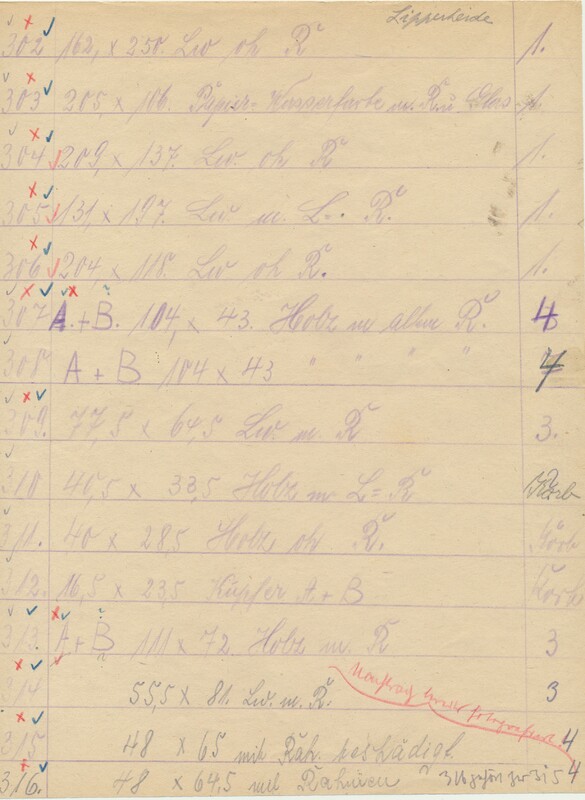 Lipperheide
302 162, x 250. Lw oh R 1.
303 205, x 106. Papier= Wasserfarbe m. R. u Glas 1.
304 209, x 137. Lw. oh R 1.
305 131, x 197. Lw m. L=. R. 1.
306 204, x 118. Lw oh R. 1.
307 A. + B. 104, x 43. Holz m altem R. 4
308 A + B 104 x 43 " " " " 4
309. 77,5 x 64,5 Lw. m. R 3.
310 40,5 x 33,5 Holz m L= R Korb
311. 40 x 28,5 Holz oh R. Korb
312. 16,5 x 23,5 Kupfer A + B Korb
313. A + B 111 x 72. Holz m. R 3
314 55,5 x 81. Lw. m. R. 3
315 48 x 65 mit Rah. beschädigt 4
316. 48 x 64,5 mit Rahmen 4